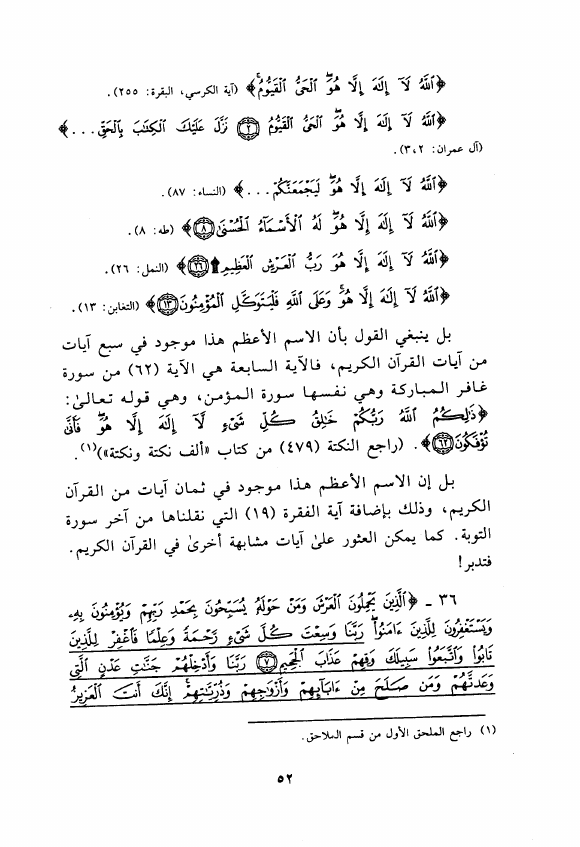 ﴿ٱللَّهُ لَآ إِلَٰهَ إِلَّا هُوَ ٱلْحَىُّ ٱلْقَيُّومُ﴾ (آية الكرسي، البقرة: ٢٥٥).
﴿ٱللَّهُ لَآ إِلَٰهَ إِلَّا هُوَ ٱلْحَىُّ ٱلْقَيُّومُ ۝٢ نَزَّلَ عَلَيْكَ ٱلْكِتَٰبَ بِٱلْحَقِّ ...﴾
(آل عمران: ٣،٢).
﴿ٱللَّهُ لَآ إِلَٰهَ إِلَّا هُوَ لَيَجْمَعَنَّكُمْ ...﴾ (النساء: ٨٧).
﴿ٱللَّهُ لَآ إِلَٰهَ إِلَّا هُوَ لَهُ ٱلْأَسْمَآءُ ٱلْحُسْنَىٰ ۝٨﴾ (طه: ٨).
﴿ٱللَّهُ لَآ إِلَٰهَ إِلَّا هُوَ رَبُّ ٱلْعَرْشِ ٱلْعَظِيمِ ۩ ۝٢٦﴾ (النمل: ٢٦).
﴿ٱللَّهُ لَآ إِلَٰهَ إِلَّا هُوَ وَعَلَى ٱللَّهِ فَلْيَتَوَكَّلِ ٱلْمُؤْمِنُونَ ۝١٣﴾ (التغابن: ١٣).
بل ينبغي القول بأن الاسم الأعظم هذا موجود في سبع آيات
من آيات القرآن الكريم، فالآية السابعة هي الآية (٦٢) من سورة
غافر المباركة وهي نفسها سورة المؤمن، وهي قوله تعالىٰ:
﴿ذَٰلِكُمُ ٱللَّهُ رَبُّكُمْ خَٰلِقُ كُلِّ شَىْءٍ لَّآ إِلَٰهَ إِلَّا هُوَ فَأَنَّىٰ
تُؤْفَكُونَ ۝٦٢﴾. (راجع النكتة (٤٧٩) من كتاب «ألف نكتة ونكتة»)(١).
بل إن الاسم الأعظم هذا موجود في ثمان آيات من القرآن
الكريم، وذلك بإضافة آية الفقرة (١٩) التي نقلناها من آخر سورة
التوبة. كما يمكن العثور علىٰ آيات مشابهة أخرىٰ في القرآن الكريم.
فتدبر!
٣٦ ـ ﴿ٱلَّذِينَ يَحْمِلُونَ ٱلْعَرْشَ وَمَنْ حَوْلَهُۥ يُسَبِّحُونَ بِحَمْدِ رَبِّهِمْ وَيُؤْمِنُونَ بِهِۦ
وَيَسْتَغْفِرُونَ لِلَّذِينَ ءَامَنُوا۟ رَبَّنَا وَسِعْتَ كُلَّ شَىْءٍ رَّحْمَةً وَعِلْمًا فَٱغْفِرْ لِلَّذِينَ
تَابُوا۟ وَٱتَّبَعُوا۟ سَبِيلَكَ وَقِهِمْ عَذَابَ ٱلْجَحِيمِ ۝٧ رَبَّنَا وَأَدْخِلْهُمْ جَنَّٰتِ عَدْنٍ ٱلَّتِى
وَعَدتَّهُمْ وَمَن صَلَحَ مِنْ ءَابَآئِهِمْ وَأَزْوَٰجِهِمْ وَذُرِّيَّٰتِهِمْ إِنَّكَ أَنتَ ٱلْعَزِيزُ
(١) راجع الملحق الأول من قسم الملاحق.
٥٢